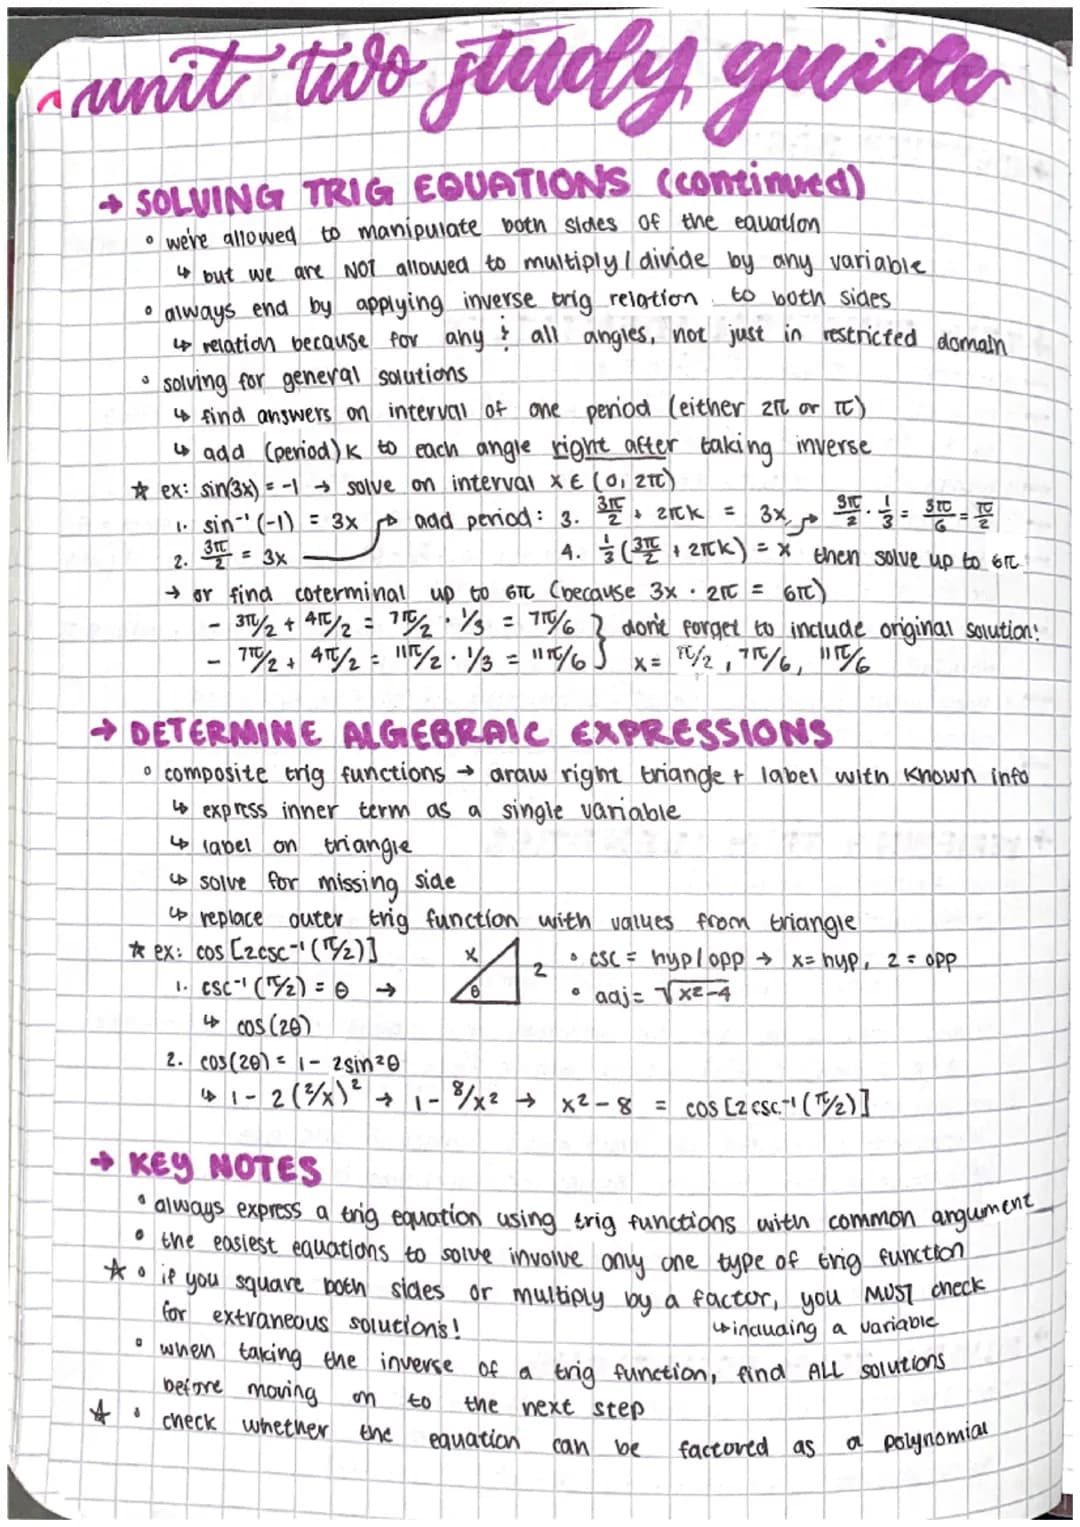 unit two study guide
→ SOLVING TRIG EQUATIONS (continued)
◦ we're allowed to manipulate both sides of the equation
↳ but we are NOT allowed to multiply / divide by any variable
◦ always end by applying inverse trig relation to both sides
↳ relation because for any & all angles, not just in restricted domain
◦ solving for general solutions
↳ find answers on interval of one period (either 2π or π)
↳ add (period)k to each angle right after taking inverse
☆ ex: sin(3x) = -1 → solve on interval x ∈ (0, 2π)
1. sin⁻¹(-1) = 3x → add period: 3. 3π/2 + 2πk = 3x → 3π/2 · 1/3 = 3π/6 = π/2
2. 3π/2 = 3x 4. 1/3 (3π/2 + 2πk) = x then solve up to 6π
→ or find coterminal up to 6π (because 3x · 2π = 6π)
- 3π/2 + 4π/2 = 7π/2 · 1/3 = 7π/6 } don't forget to include original solution!
- 7π/2 + 4π/2 = 11π/2 · 1/3 = 11π/6 } x = π/2, 7π/6, 11π/6
→ DETERMINE ALGEBRAIC EXPRESSIONS
◦ composite trig functions → draw right triangle + label with known info
↳ express inner term as a single variable
↳ label on triangle
↳ solve for missing side
↳ replace outer trig function with values from triangle
☆ ex: cos [2csc⁻¹(π/2)] x 2 θ ◦ csc = hyp/opp → x = hyp, 2 = opp
1. csc⁻¹(π/2) = θ → ◦ adj = √x²-4
↳ cos(2θ)
2. cos(2θ) = 1 - 2sin²θ
↳ 1 - 2(2/x)² → 1 - 8/x² → x² - 8 = cos [2csc⁻¹(π/2)]
→ KEY NOTES
◦ always express a trig equation using trig functions with common argument
◦ the easiest equations to solve involve only one type of trig function
☆ ◦ if you square both sides or multiply by a factor, you MUST check
for extraneous solutions! ↳ including a variable
◦ when taking the inverse of a trig function, find ALL solutions
before moving on to the next step
☆ ◦ check whether the equation can be factored as a polynomial